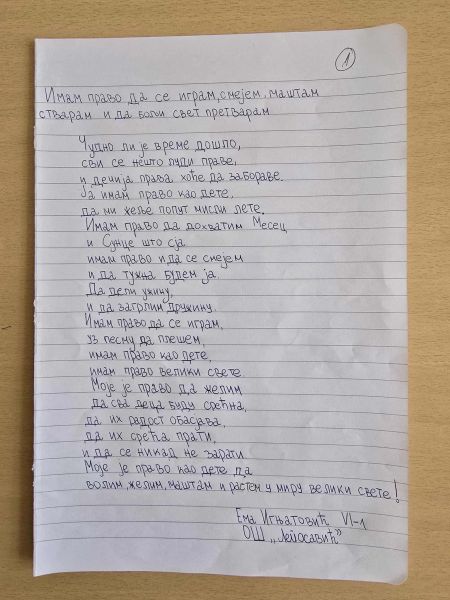 1
Имам право да се играм, смејем, маштам
стварам и да бољи свет претварам
Чудно ли је време дошло,
сви се нешто луди праве,
и дечија права хоће да забораве.
Ја имам право као дете,
да ми жеље попут мисли лете.
Имам право да дохватим Месец
и Сунце што сја
имам право и да се смејем
и да тужна будем ја.
Да делим ужину,
и да загрлим дружину.
Имам право да се играм,
уз песму да плешем,
имам право као дете,
имам право велики свете.
Моје је право да желим
да сва деца буду срећна,
да их радост обасјава,
да их срећа прати,
и да се никад не зарати.
Моје је право као дете да
волим, желим, маштам и растем у миру велики свете!
Ема Игњатовић VI-1
ОШ „Лепосавић"